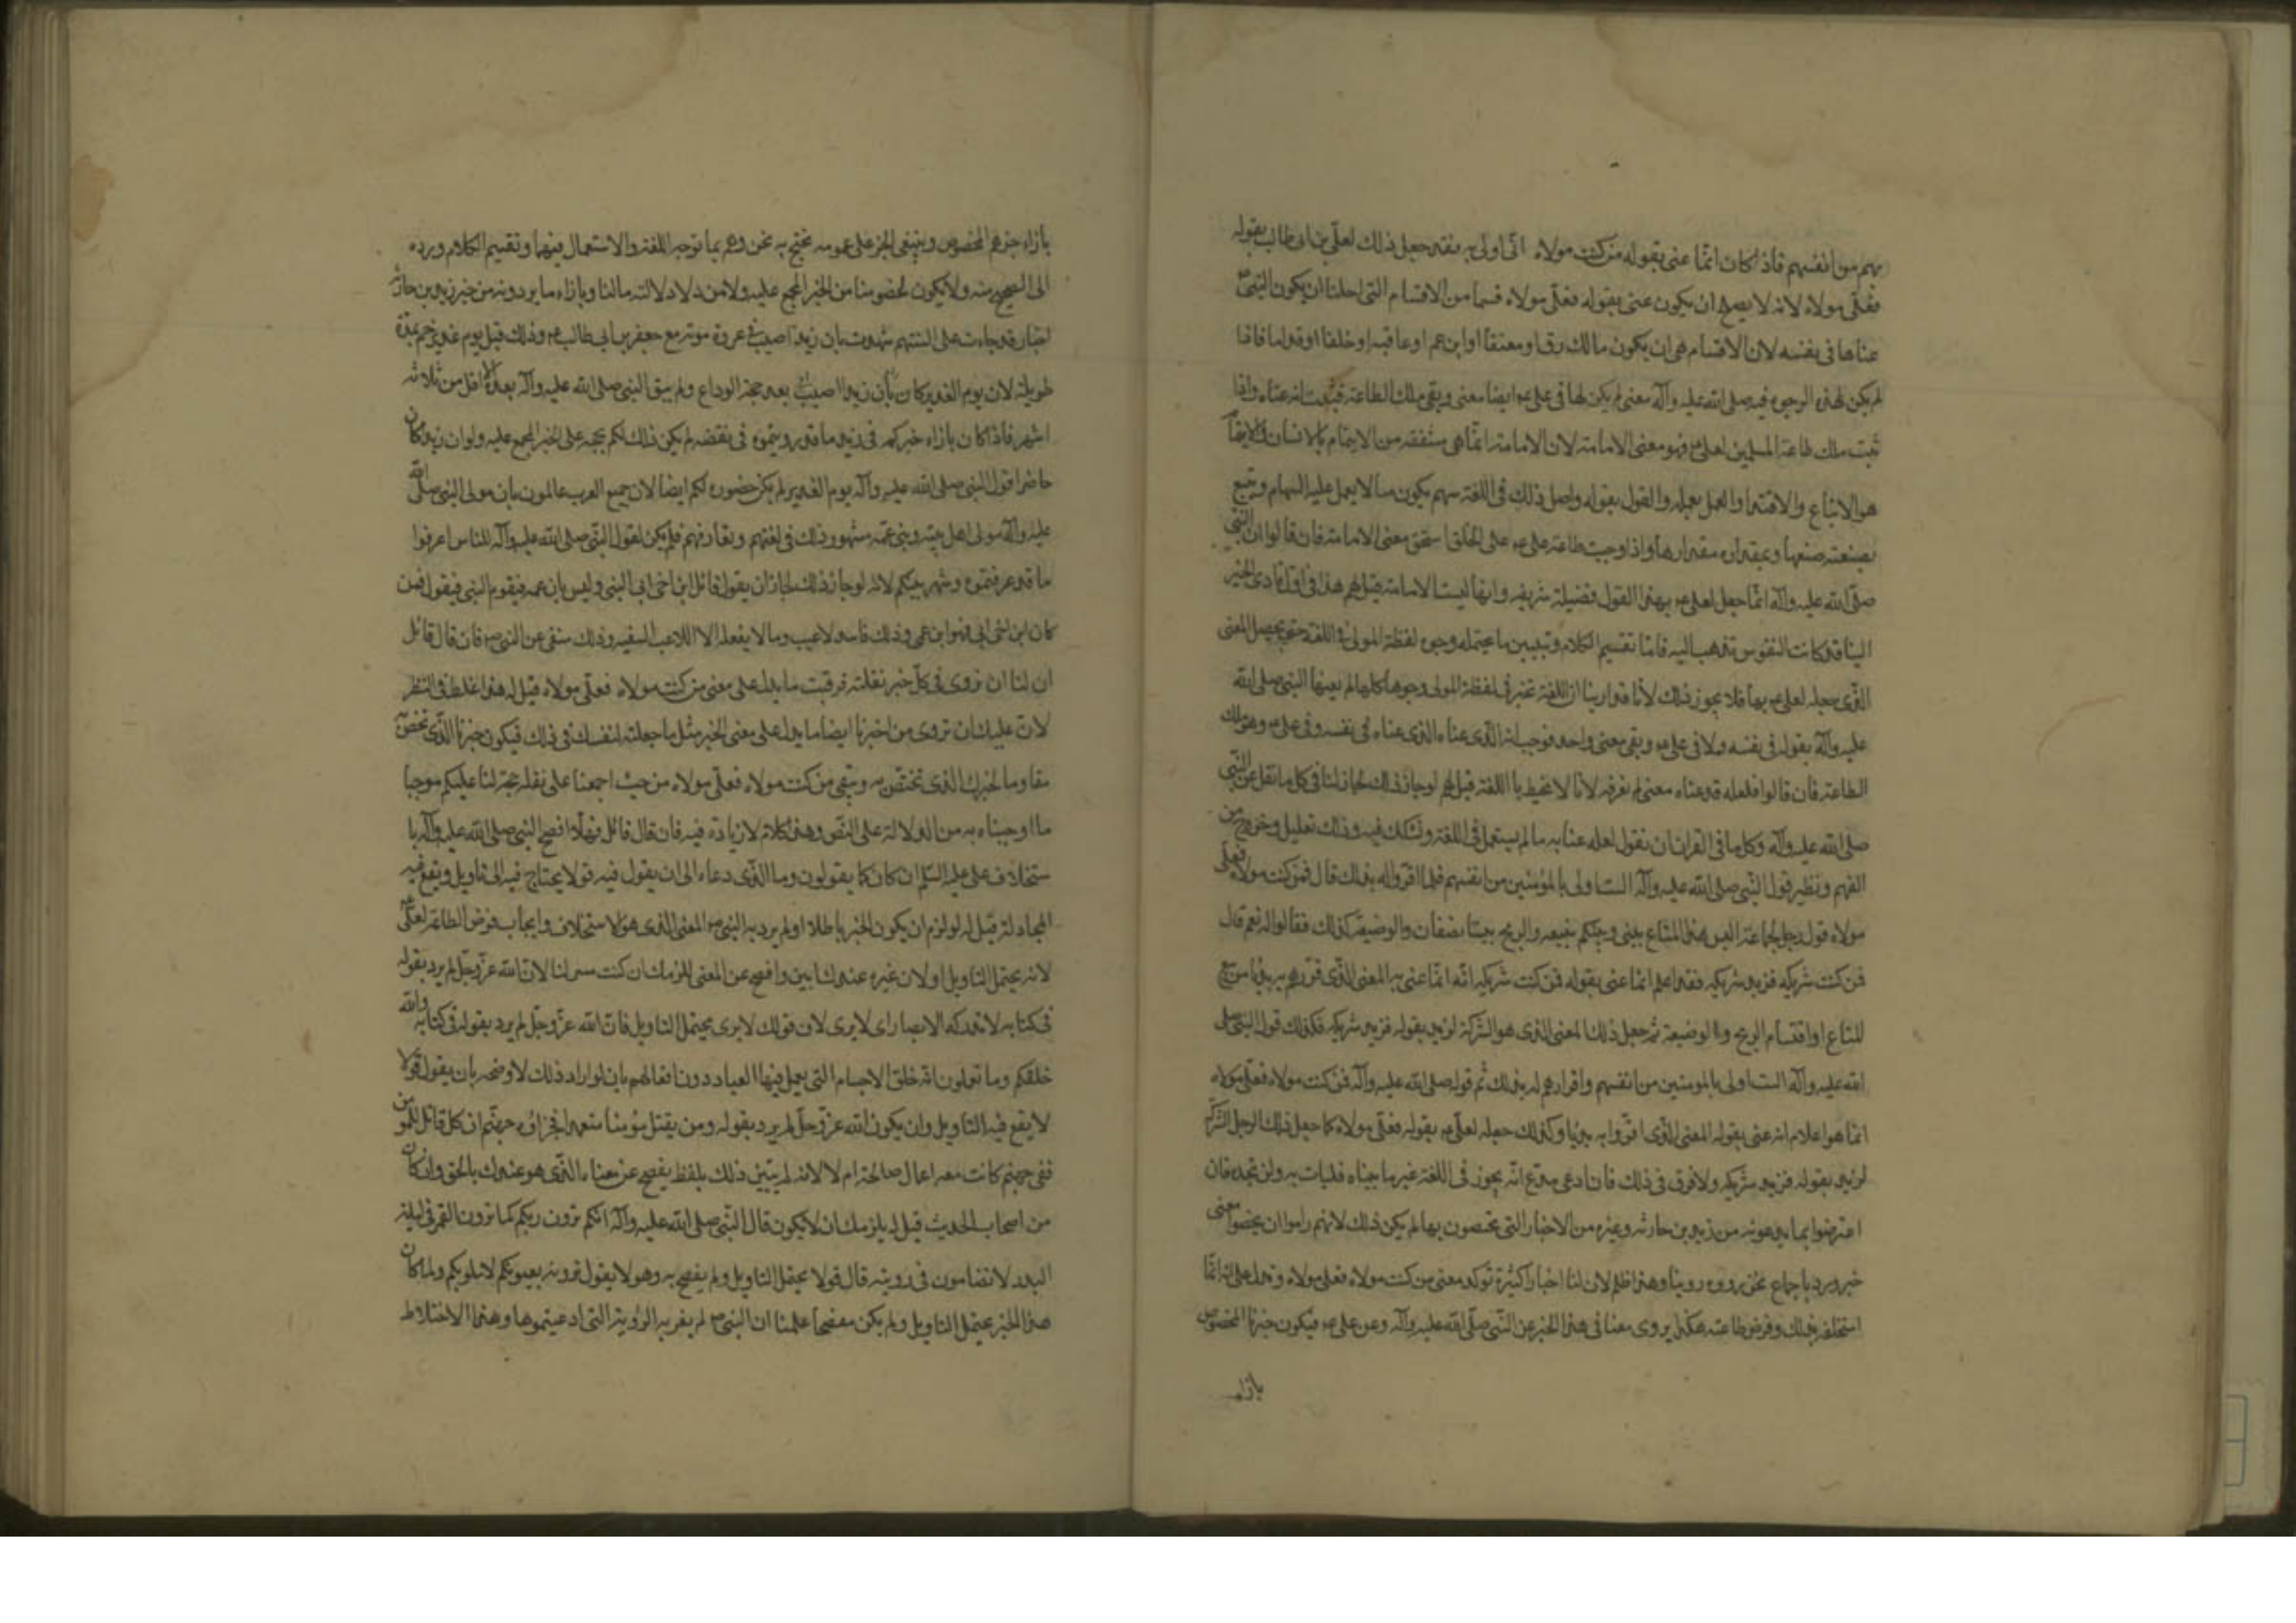 بهم من انفسهم فاذا كان انما عنى بقوله من كنت مولاه اى اولى به فقد جعل ذلك لعلى بن ابى طالب بقوله
فعلى مولاه لانه لا يصلح ان يكون عنى بقوله فعلى مولاه قسما من الاقسام التى احلنا ان يكون النبى ص
عناها فى نفسه لان الاقسام هى ان يكون مالك رق او معتقا او ابن عم او عاقبه او خلفا او قداما فاذا
لم يكن لهذه الوجوه فيه صلى الله عليه وآله معنى لم يكن لها فى على ع ايضا معنى وبقى ملك الطاعة فثبت انه عناه واذا
ثبت ملك طاعة المسلمين لعلى ع فهو معنى الامامة لان الامامة انما هى مشتقة من الايتمام بالانسان والايتمام
هو الاتباع والاقتداء والعمل بعمله والقول بقوله واصل ذلك فى اللغة سهم يكون مثالا يعمل عليه السهام ويتبع
بصنعته صنعها وبمقداره مقدارها واذا وجبت طاعة على ع على الخلق استحق معنى الامامة فان قالوا ان النبى
صلى الله عليه وآله انما جعل لعلى ع بهذا القول فضيلة شريفة وانها ليست الامامة قيل لهم هذا فى اول تأدى الخبر
الينا قد كانت النفوس تذهب اليه فاما تقسيم الكلام وتبيين ما يحتمله وجوه لفظة المولى فى اللغة حتى يحصل المعنى
الذى جعله لعلى ع بها فلا يجوز ذلك لأنا قد راينا ان اللغة تجيز فى لفظة المولى وجوها كلها لم يعنها النبى صلى الله
عليه وآله بقوله فى نفسه ولا فى على ع وبقى معنى واحد فوجب انه الذى عناه الذى عناه فى نفسه وفى على ع وهو ملك
الطاعة فان قالوا فلعله قد عناه معنى لم نعرفه لأنا لا نحيط بااللغة قيل لهم لو جاز ذلك لجاز لنا فى كل ما نقل عن النبى
صلى الله عليه وآله وكل ما فى القران ان نقول لعله عنا به ما لم يستعمل فى اللغة ونشكك فيه وذلك تعليل وخروج من
الفهم ونظير قول النبى صلى الله عليه وآله الست اولى بالمؤمنين من انفسهم فلما اقروا له بذلك قال فمن كنت مولاه فعلى
مولاه قول رجل لجماعة اليس هذا المتاع بينى وبينكم نبيعه والربح بيننا نصفان والوضيعة كذلك فقالوا له نعم قال
فمن كنت شريكه فزيد شريكه فقد اعلم انما عنى بقوله فمن كنت شريكه انه انما عنى به المعنى الذى قررهم به بديا من بيع
المتاع او اقتسام الربح واالوضيعة ثم جعل ذلك المعنى الذى هو الشركة لزيد بقوله فزيد شريكه فكذلك قول النبى صلى
الله عليه وآله الست اولى بالمومنين من انفسهم واقرارهم له بذلك ثم قوله صلى الله عليه وآله فمن كنت مولاه فعلى مولاه
انما هو اعلام انه عنى بقوله المعنى الذى اقروا به بديا وكذلك جعله لعلى ع بقوله فعلى مولاه كما جعل ذلك الرجل الشركة
لزيد بقوله فزيد شريكه ولا فرق فى ذلك فان ادعى مدع انه يجوز فى اللغة غير ما بيناه فليات به ولن تجده فان
اعترضوا بما يدعونه من زيد بن حارثه وغيره من الاخبار التى يختصون بها لم يكن ذلك لانهم راموا ان يخصوا معنى
خبر ورد باجماع بخبر رووه دوننا وهذا ظلم لان لنا اخبارا كثيرة توكد معنى من كنت مولاه فعلى مولاه وتدل على انه انما
استخلفه بذلك وفرض طاعته هكذا يروى معنا فى هذا الخبر عن النبى صلى الله عليه وآله وعن على ع فيكون خبرنا المخصوص
بازاء
بازاء خبرهم المخصوص ويبقى الخبر على عمومه نحتج به نحن وهم بما توجبه اللغة والاستعمال فيها وتقسيم الكلام ورده
الى الصحيح منه ولا يكون لخصومنا من الخبر المجمع عليه ولا من دلالته ما لنا وبازاء ما يروونه من خبر زيد بن حارثه
اخبار قد جاءت على السنتهم شهدت بان زيدا اصيب فى غزوة موته مع جعفر بن ابى طالب ع وذلك قبل يوم غدير خم بمدة
طويلة لان يوم الغدير كان بعد حجة الوداع ولم يبق النبى صلى الله عليه وآله بعده الا اقل من ثلاثة
اشهر فاذا كان بازاء خبركم فى زيد ما قد رويتموه فى نقضه لم يكن ذلك لكم بحجة على الخبر المجمع عليه ولو ان زيدا كان
حاضرا قول النبى صلى الله عليه وآله يوم الغدير لم يكن حضوره لكم ايضا لان جميع العرب عالمون بان مولى النبى صلى الله
عليه وآله مولى اهل بيته وبنى عمه مشهور ذلك فى لغتهم وتعارفهم فلم يكن لقول النبى صلى الله عليه وآله للناس اعرفوا
ما قد عرفتموه وشهر بينكم لانه لو جاز ذلك لجاز ان يقول قائل ابن اخى اب النبى وليس بابن عمه فيقوم النبى فيقول فمن
كان ابن اخى ابى فهو ابن عمى وذلك فاسد لاعيب وما لا يفعله الا اللاعب السفيه وذلك منفى عن النبى ص فان قال قائل
ان لنا ان نروى فى كل خبر نقلته فرقت ما يدل على معنى من كنت مولاه فعلى مولاه قيل له هذا غلط فى النظر
لان عليك ان تروى من اخبرنا ايضا ما يدل على معنى الخبر مثل ما جعلته لنفسك فى ذلك فيكون خبرنا الذى نختص
مقاوما لخبرك الذى تختص به ويبقى من كنت مولاه فعلى مولاه من حيث اجمعنا على نقله حجة لنا عليكم موجبا
ما اوجبناه به من الدلالة على النص وهذا كلام لا زيادة فيه فان قال قائل فهلا افصح النبى صلى الله عليه وآله با
ستخلاف على عليه السلم ان كان كما يقولون وما الذى دعاه الى ان يقول فيه قولا يحتاج فيه الى تاويل ويقع فيه
المجادلة قيل له لو لزم ان يكون الخبر باطلا او لم يرد به النبى ص المعنى الذى هو الاستخلاف وايجاب فرض الطاعة لعلى ع
لانه يحتمل التاويل او لان غيره عندك ابين وافصح عن المعنى للزمك ان كنت لنا لان الله عز وجل لم يرد بقوله
فى كتابه لا تدركه الابصار اى لا يرى لان قولك لا يرى يحتمل التاويل فان الله عز وجل لم يرد بقوله فى كتابه والله
خلقكم وما تعلون انه خلق الاجسام التى يعمل فيها العباد دون افعالهم بانه لو اراد ذلك لاوضحه بان يقول قولا
لا يقع فيه التاويل وان يكون الله عز وجل لم يرد بقوله ومن يقتل مؤمنا متعمدا فجزاؤه جهنم ان كل قاتل للمومن
ففى جهنم كانت معه اعمال صالحة ام لا لانه لم يتبين ذلك بلفظ يفصح عن معناه الذى هو عندك بالحق وان كان
من اصحاب الحديث قيل له يلزمك ان لا يكون قال النبى صلى الله عليه وآله انكم ترون ربكم كما ترون القمر فى ليلة
البدر لا تضامون فى رويته قال قولا يحتمل التاويل ولم يفصح به وهو لا يقول ترونه بعيونكم لا بقلوبكم ولما كان
هذا الخبر يحتمل التاويل ولم يكن مفصحا علمنا ان النبى ص لم يعن به الرؤية التى ادعيتموها وهذا الاختلاط